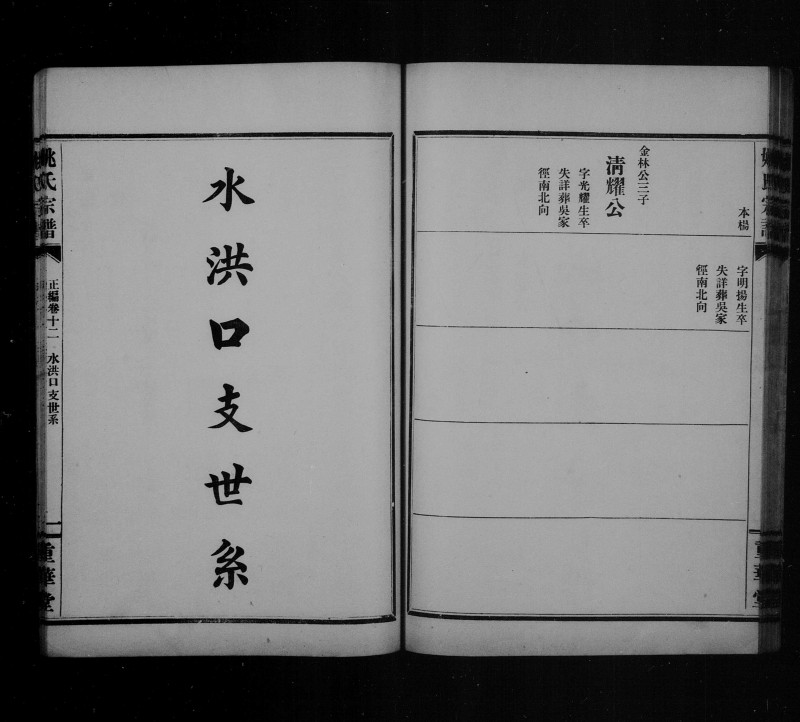 本楊
字明揚生卒
失詳葬吳家
徑南北向
金林公三子
清耀公
字光耀生卒
失詳葬吳家
徑南北向
水洪口支世系
姚氏宗譜
正編卷十二
水洪口支世系
一
重華堂